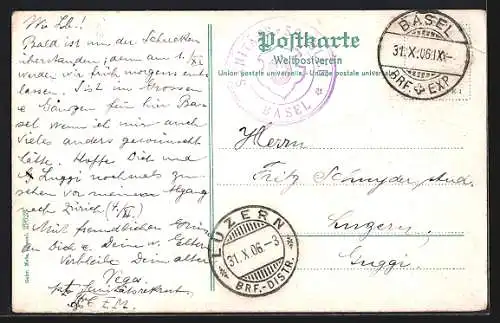 Postkarte
Weltpostverein
Union postale universelle. - Unione postale universale
BASEL
31.X.06.IX-
BRF. EXP.
BASEL
LUZERN
31.X.06.-3
BRF.-DISTR.
Bald ist nun der Schrecken
überstanden; denn am 1./XI
werden wir früh morgens ent-
lassen. Ist im Grossen
Ganzen für hier Basel
wenn ich mir auch
vieles anders gewünscht
hätte. Hoffe Dich und
Luggi nochmals zu
sehen vor meinem Abgang
nach Zürich
Mit freundlichen Grüs-
sen Dich & Deine w. Eltern
Verbleibe Dein alter
Herrn
Fritz Schnyder, stud.
Luzern